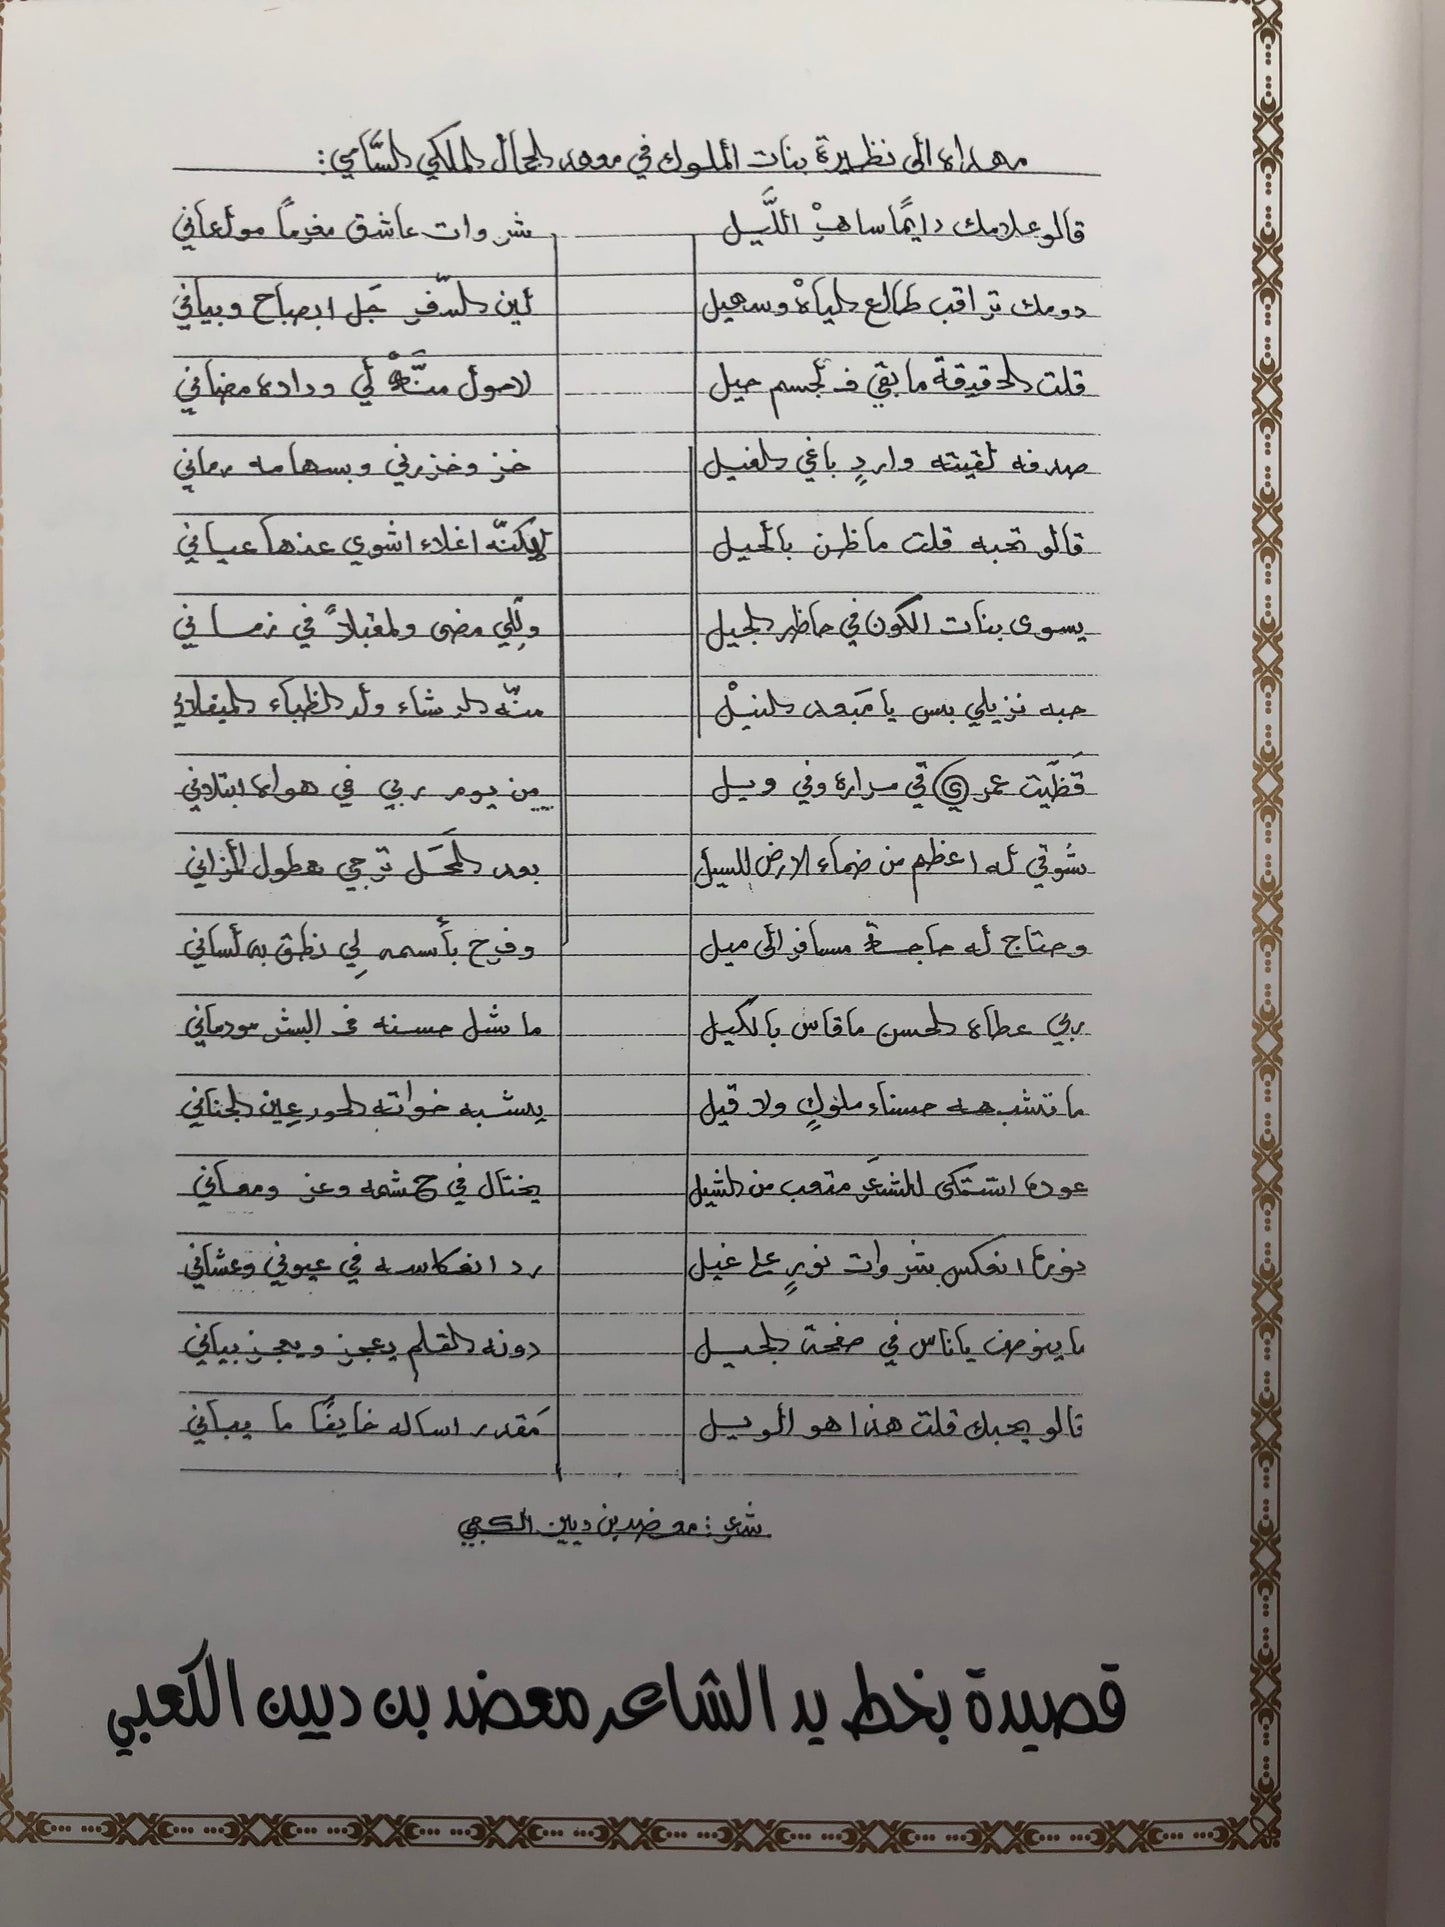 مهداه الى نظيرة بنات الملوك في معهد الجمال الملكي السَّامي:
قالو علامك دايمًا ساهرْ اللَّيل شروات عاشق مغرمًا مولعاني
دومك تراقب طالع الياهْ وسهيل لين السّفر جَل ابصباح وبياني
قلت الحقيقة ما بقي ف الجسم حيل لاحول منَّهْ لي وداده مضاني
صدفه لقيته واردٍ باغي الغيل خز وخزرني وبسهامه رماني
قالو تحبه قلت ماظن بالحيل ليكنّه اغلاء اشوي عندها عياني
يسوى بنات الكون في حاظر الجيل ولِلي مضى ولمقبلاً في زماني
حبه نزيلي بس يا مَبعد النيْل منّه الرشاء ولد الظباء الميفلاني
قَظّيت عمري في مراره وفي ويل مِن يوم ربي في هواه ابتلاني
شُوقي له اعظم من ضماء الارض للسيل بعد المَحَل ترجي هطول المزاني
وحتاج له حاجة مسافر الى ميل وفرح بأسمه لِي نطق به لساني
ربي عطاه الحسن ماقاس بالكيل ما شل حسنه ف البشر مودماني
ما تشبهه حسناء ملوكٍ ولا قيل يشبه خواته الحور عِين الجناني
عوده اشتكى الشعَر متعب من الشيل يختال في حشمه وعز ومعاني
نوره انعكس شروات نورٍ على غيل رد انعكاسه في عيوني وعشاني
ما ينوصف ياناس في صفحة الجيل دونه القلم يعجز ويعجز بياني
قالو يحبك قلت هذا هو الويل مَقدر اساله خايفًا ما يباني
شعر: معضد بن ديين الكعبي
قصيدة بخط يد الشاعر معضد بن ديين الكعبي